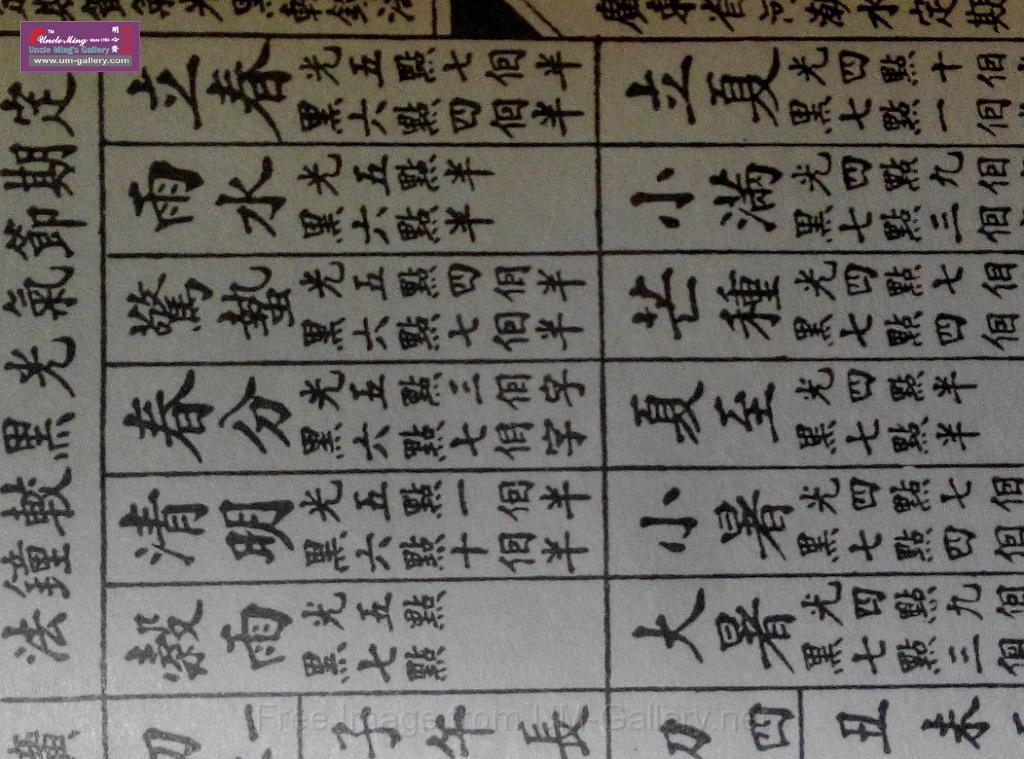 Uncle Ming
TM
since 1986
Uncle Ming's Gallery
www.um-gallery.com
定期節氣光黑較鐘法
立春
光五點七個半
黑六點四個半
雨水
光五點半
黑六點半
驚蟄
光五點四個半
黑六點七個半
春分
光五點三個字
黑六點七個字
清明
光五點一個半
黑六點十個半
穀雨
光五點
黑七點
立夏
光四點十個
黑七點一個
小滿
光四點九個
黑七點三個
芒種
光四點七個
黑七點四個
夏至
光四點半
黑七點半
小暑
光四點七個
黑七點四個
大暑
光四點九個
黑七點三個
廣東省河潮水定期
初一
子午長
初四
丑未
Free Image from UM-Gallery.net